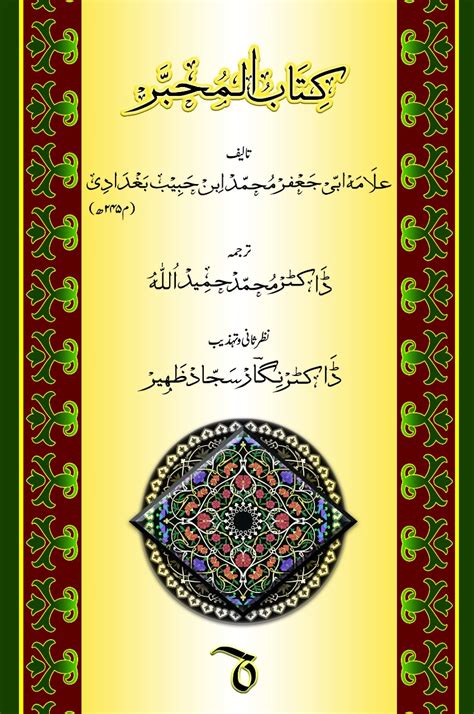 كِتَاب المُحَبَّر
تالیف
علامہ ابی جعفر محمد ابن حبیب بغدادی
(م ۲۴۵ھ)
ترجمہ
ڈاکٹر محمد حمید اللہ
نظر ثانی و تہذیب
ڈاکٹر نگار سجاد ظہیر